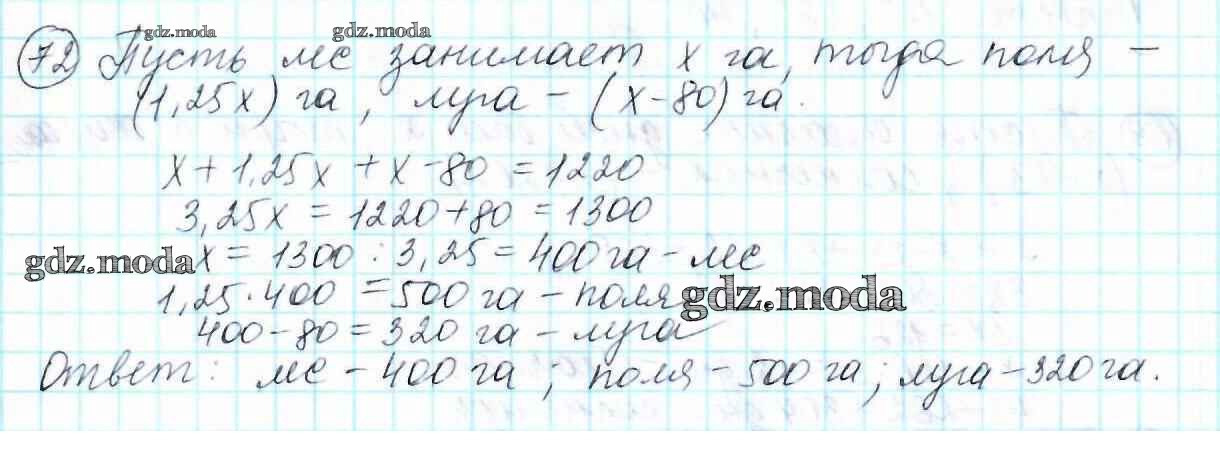 gdz.moda gdz.moda
72 Пусть лес занимает x га, тогда поля –
(1,25x) га, луга – (x-80) га.
x + 1,25x + x - 80 = 1220
3,25x = 1220 + 80 = 1300
gdz.moda x = 1300 : 3,25 = 400 га - лес
1,25 · 400 = 500 га - поля gdz.moda
400 - 80 = 320 га - луга
Ответ: лес - 400 га; поля - 500 га; луга - 320 га.